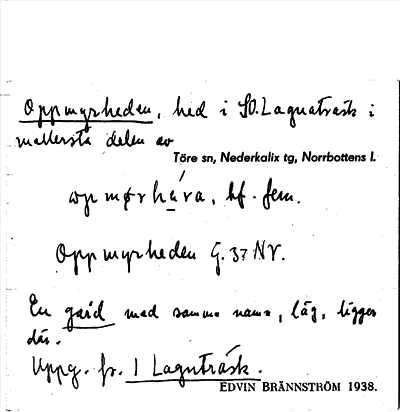 Oppmyrheden, hed i SO. Lagnaträsk i
mellersta delen av
Töre sn, Nederkalix tg, Norrbottens l.
bf. fem.
Oppmyrheden G. 37 NV.
En gård med samma namn, läg, ligger
där.
Uppg. fr. 1 Lagnträsk.
EDVIN BRÄNNSTRÖM 1938.